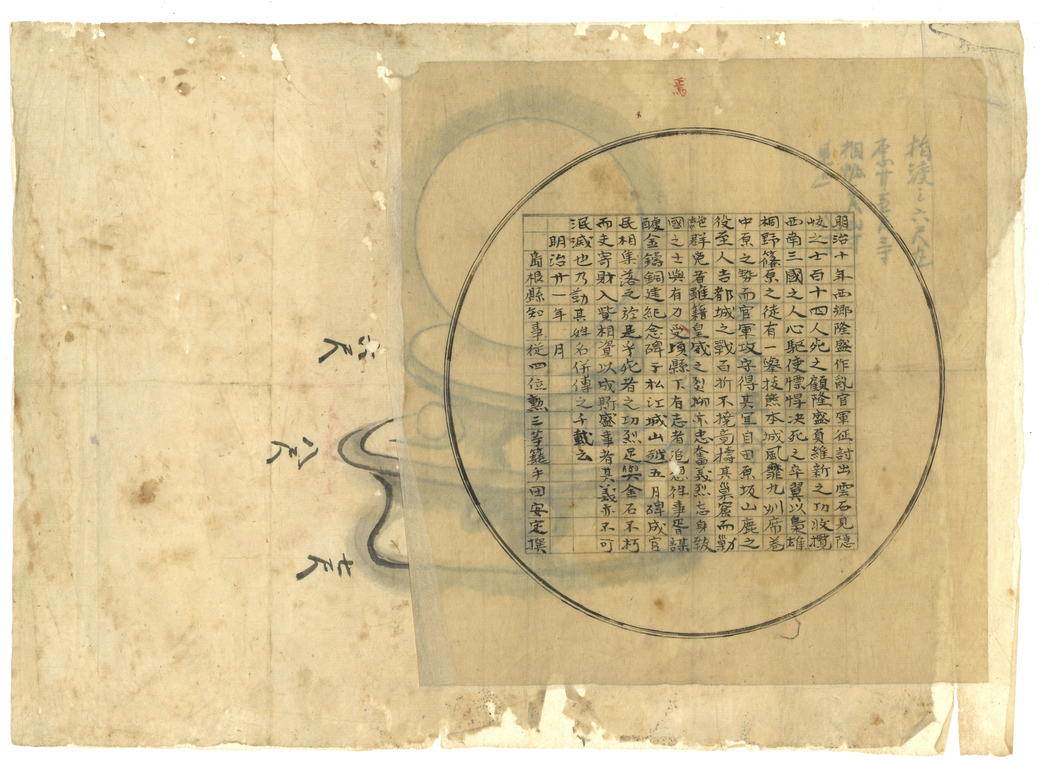 焉
明治十年西郷隆盛作亂官軍征討出雲石見隠
岐之士百十四人死之顧隆盛負維新之功收攬
西南三國之人心駆使慓悍决死之卒翼以梟雄
桐野篠原之徒有一擧技熊本城風靡九州席巻
中原之勢而官軍攻守得其宜自田原坂山鹿之
役至人吉都城之戰百折不撓竟擣其巢窟而勦
絶群兇者雖籍皇威之烈抑亦忠奮義烈忘身致
國之士與有力受項縣下有志者追思往事胥謀
醵金鑄銅建紀念碑于松江城山越五月碑成官
民相集落之於是乎死者之功烈足與金石不朽
而支寄財入貲相資以成斯盛事者其義亦不可
泯滅也乃勒其姓名併傳之千載云
明治廿一年 月
島根縣知事従四位勲三等籠手田安定撰
六尺
八尺
七尺